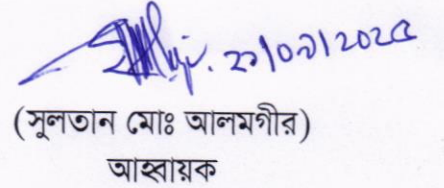 ২১/০৯/২০২৫
(সুলতান মোঃ আলমগীর)
আহবায়ক